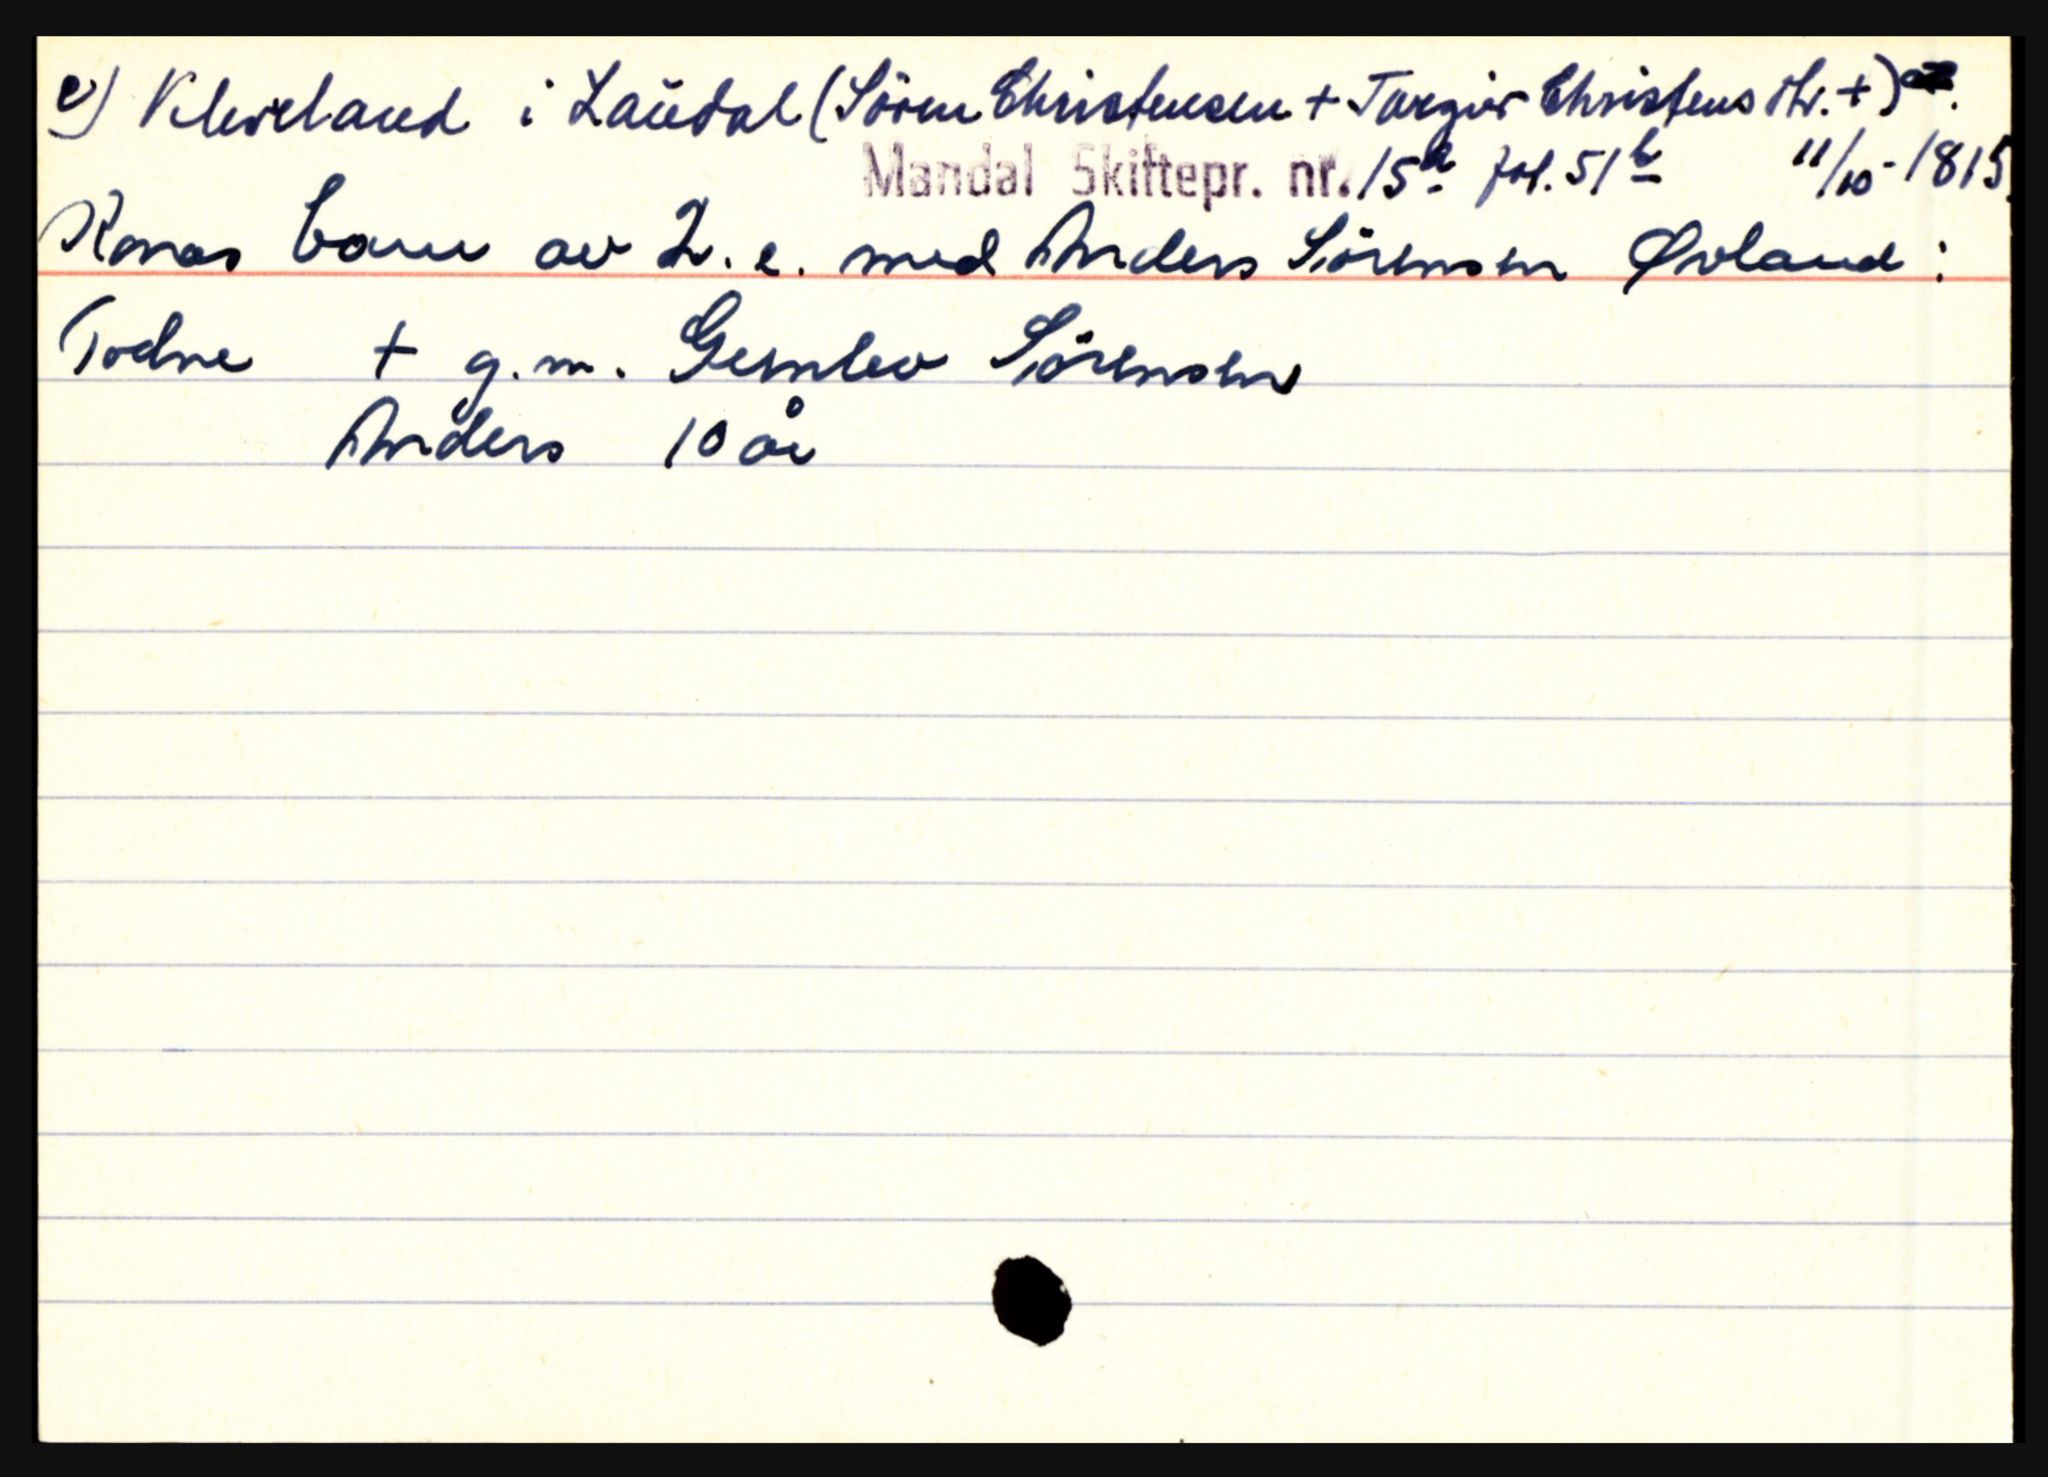 e) Kleveland i Laudal (Sören Christensen + Torgier Christens dtr. +)
Mandal Skiftepr. nr. 15a fol. 51b 11/10-1815
Konas barn av 2. e. med Anders Sörensen Øvland:
Todne + g.m. Gemlev Sörensen
Anders 10 år